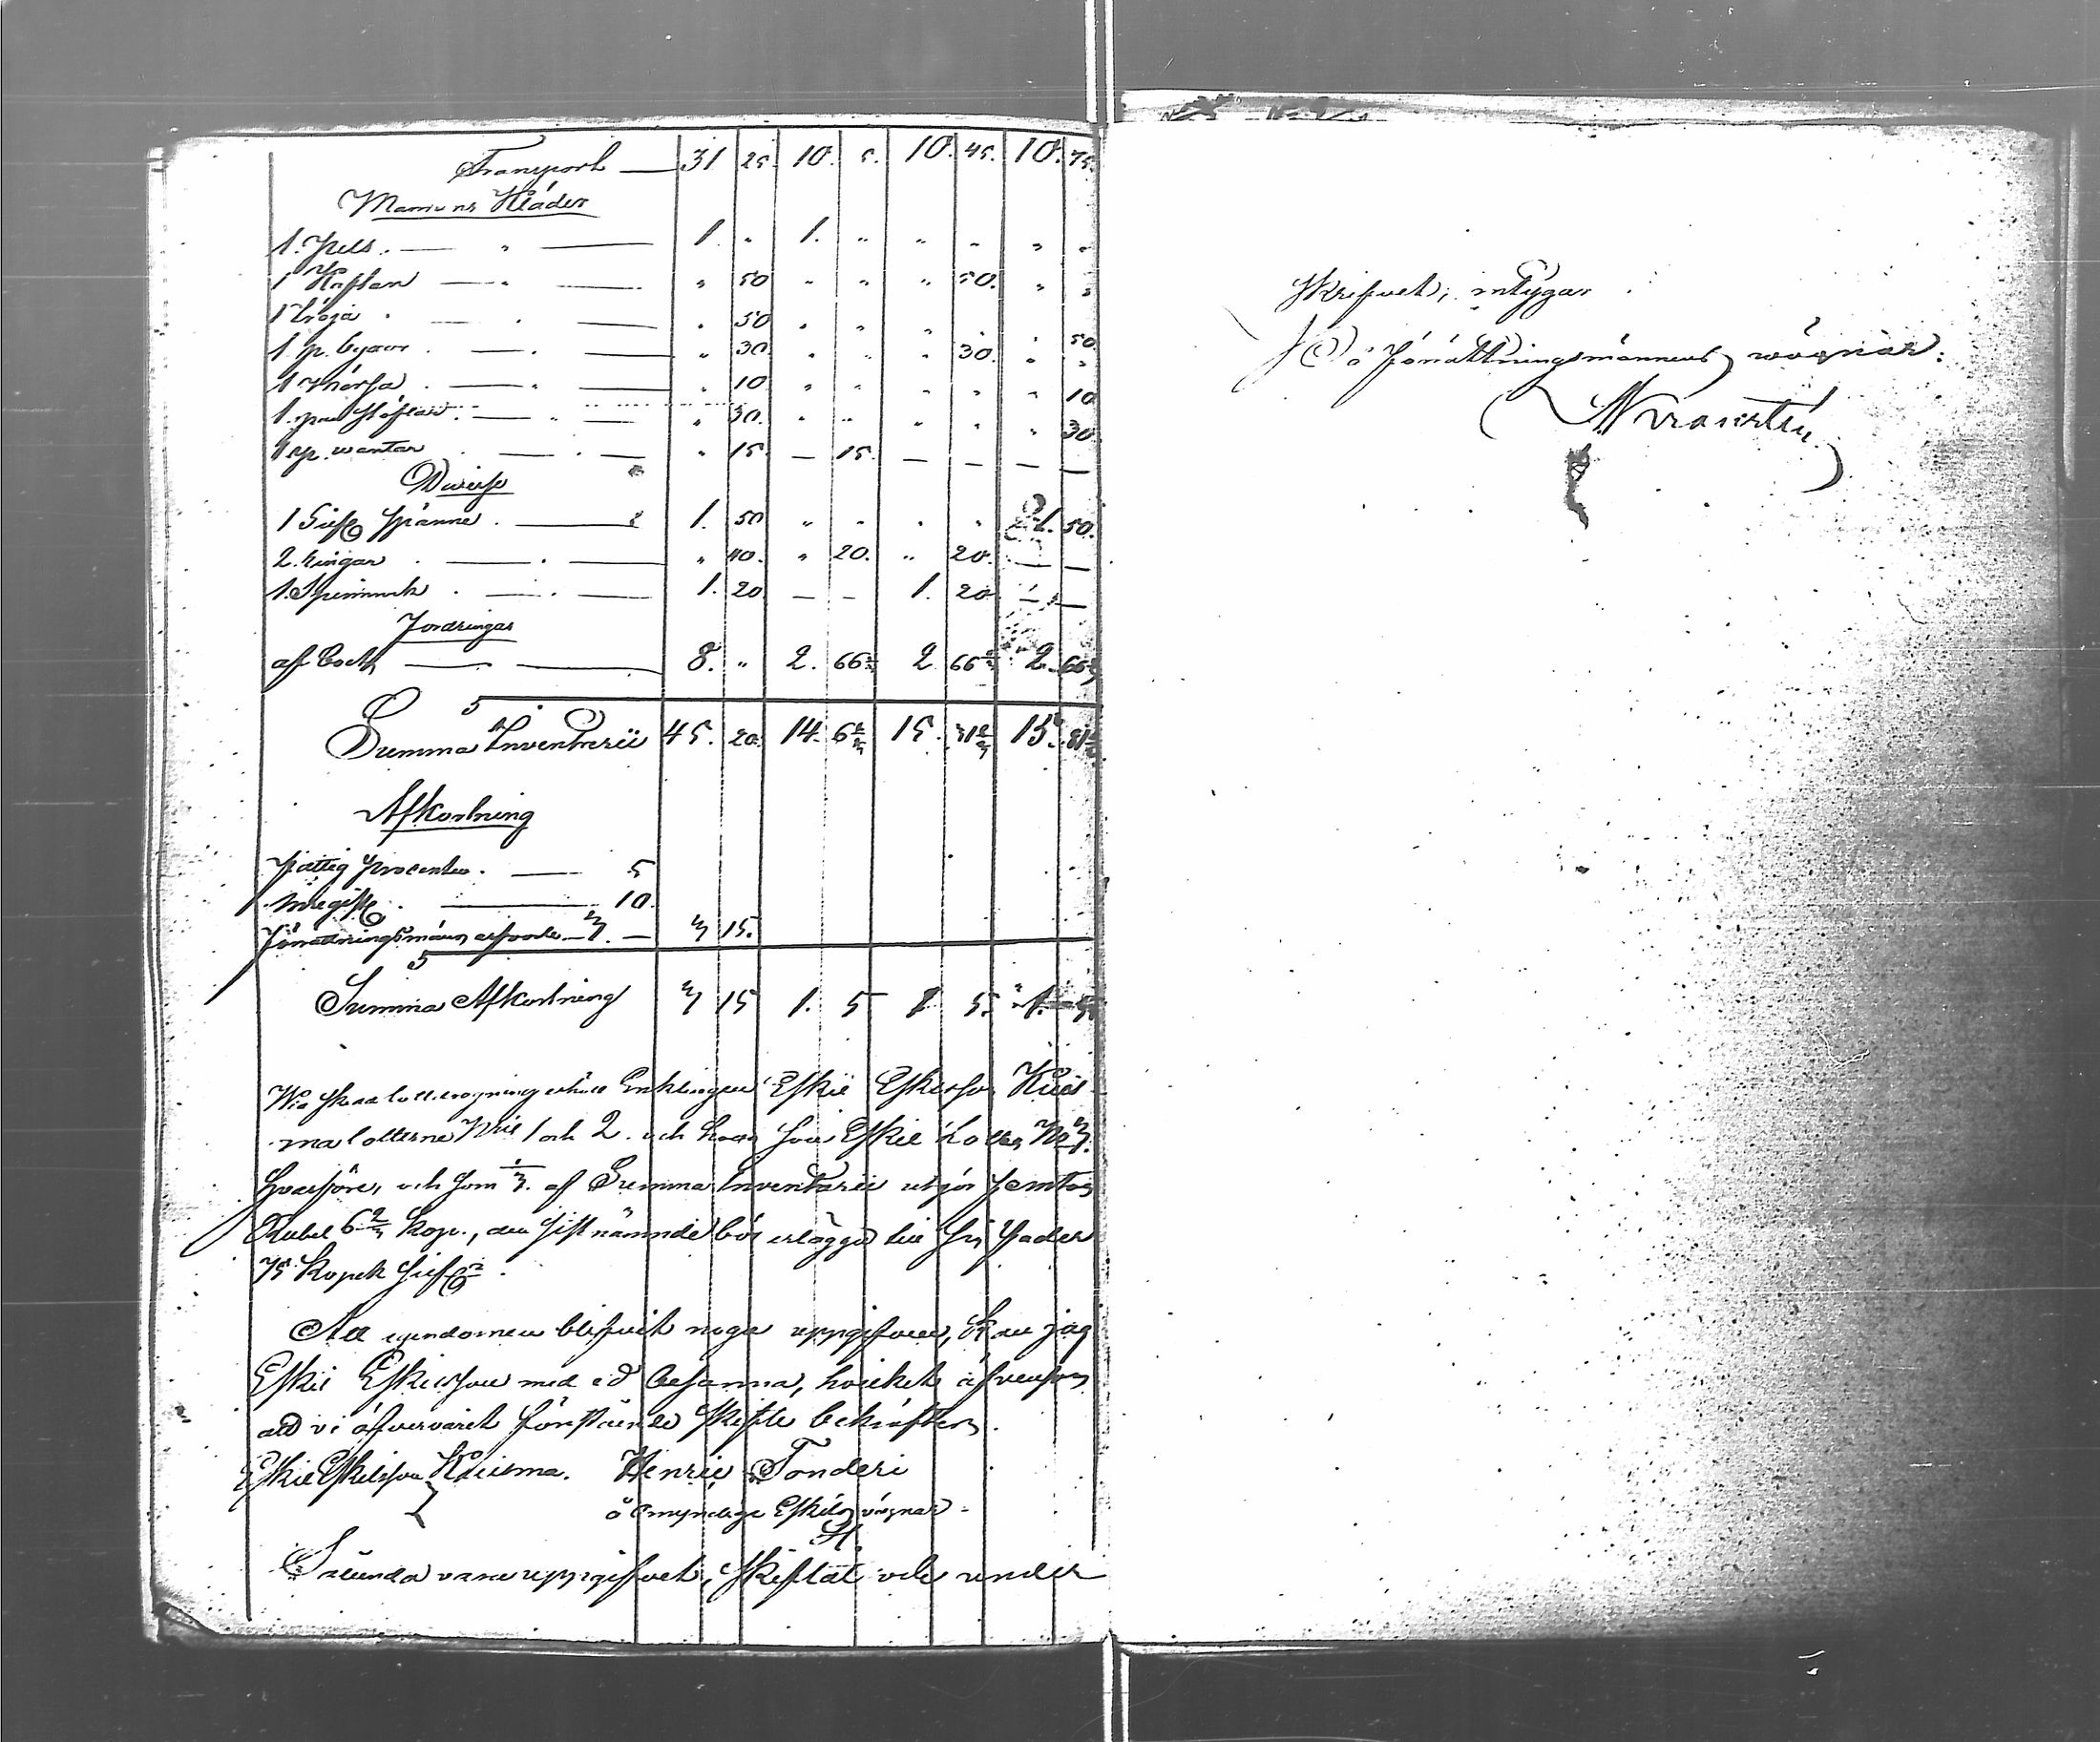 Transport — 31 25. 10. 5. 10. 45. 10. 75.
Mannens Kläder
1. Pels. — " — 1. " 1. " " " " "
1 Kaftan — " — " 50 " " " 50. " "
1 tröja . — . — " 50 " " " " " 50.
1 p. byxor . — . — " 30. " " " 30. " "
1 mössa . — " — " 10 " " " " " 10
1. par stöflar . — " — " 30. " " " " " 30.
1 p. wantar . — . — " 15. — 15. — — — —
Diverse
1 Silf spänne . — 1. 50 " " " " 1. 50.
2. ringar . — . — " 40. " 20. " 20. — —
1. Spinrock . — . — 1. 20 — — 1. 20 — —
Fordringar
af Boet — . — 8. " 2. 66 2/3 2 66 2/3 2. 66 2/3
Summa Inventarii 45. 20. 14. 6 2/3 15. 31 2/3 15. 81 2/3
Afkortning
fattig procenten . — 5
. — 10.
förrättningsmäns arfvode — 3. — 3 15.
Summa Afkortning 3 15 1. 5 1 5. 1. 5
Wid skedd lottdragning erhöll Enklingen Eskil Eskilsson Kuis-
ma lotterne N:is 1 och 2. och hans son Eskil Lotten No 3.
hvarföre, och som 1/3. af Summa Inventarii utgör femton
Rubel 6 2/3 kop., den sistnämnde bör erlägga till sin fader
75 kopek Silf:r.
Att egendomen blifvit noga uppgifven, kan jag
Eskil Eskilsson med ed besanna, hvilket äfvensom
att vi öfvervarit förestående skifte bekräftas.
Eskil Eskilsson Kuisma. Henric Tonderi
å omyndige Eskils vägnar.
Sålunda vara uppgifvet, skiftat och under
skrifvet; intygar
På förrättningsmännens wägnar: